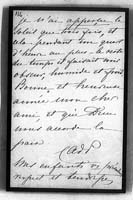 je n'ai apporté le
soleil que trois fois, et
cela pendant un quart
d'heure au plus le reste
du temps il faisait un
obscur humide et froid
Bonne et heureuse
année mon cher
ami et que Dieu
nous accorde la
paix
Mes enfants
respect et tendresse